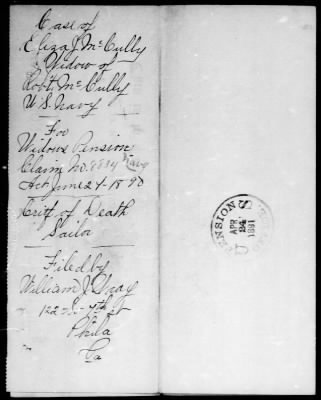 Case of
Eliza J. McCully
Widow of
Robt. McCully
U.S. Navy
For
Widows Pension
Claim No. 8834 Navy
Act June 27-1890
Certif of Death
Sailor
Filed by
William J. Gray
122 So 7th St
Phila
Pa
PENSION
APR
24
1891